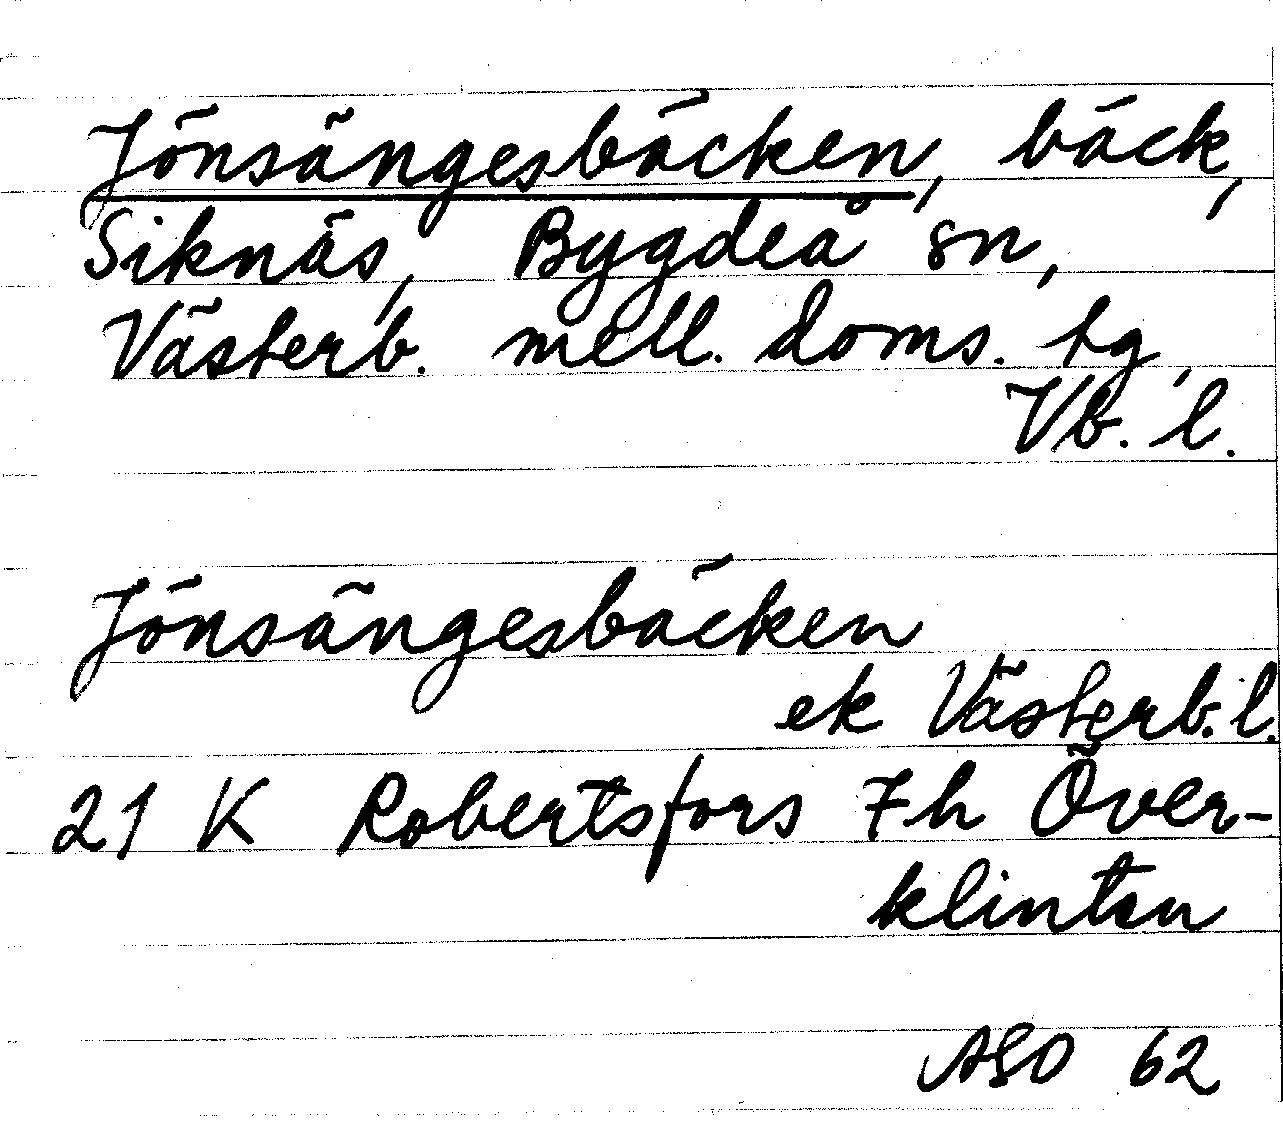 Jönsängesbäcken, bäck,
Siknäs, Bygdeå sn,
Västerb. mell. doms. tg,
Vb. l.
Jönsängesbäcken
ek Västerb. l.
21 K Robertsfors 7h Över-
klinten
ASO 62